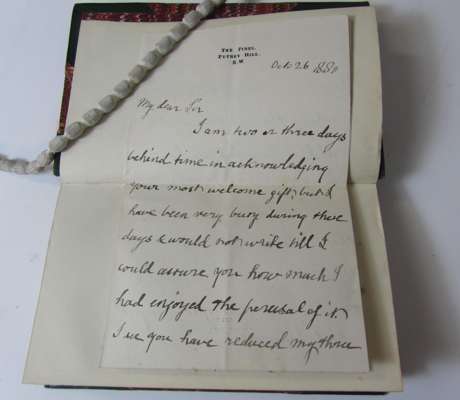 THE PINES,
PUTNEY HILL,
S.W.
Oct. 26 1880
My dear Sir
I am two or three days
behind time in acknowledging
your most welcome gift, but I
have been very busy during these
days & would not write till I
could assure you how much I
had enjoyed the perusal of it.
I see you have reduced my three